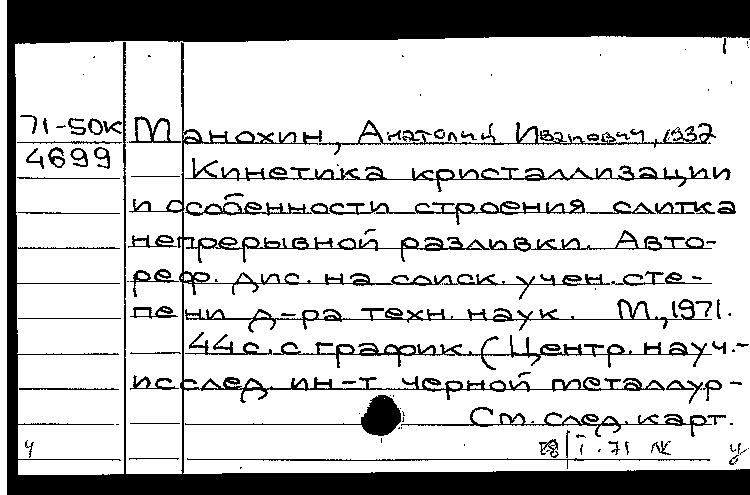 71-50к Манохин, Анатолий Иванович, 1932
4699 Кинетика кристаллизации
и особенности строения слитка
непрерывной разливки. Авто-
реф. дис. на соиск. учен. сте-
пени д-ра техн. наук. М., 1971.
44 с. с график. (Центр. науч.-
исслед. ин-т черной металлур-
См. след. карт.
ч I. 71 у